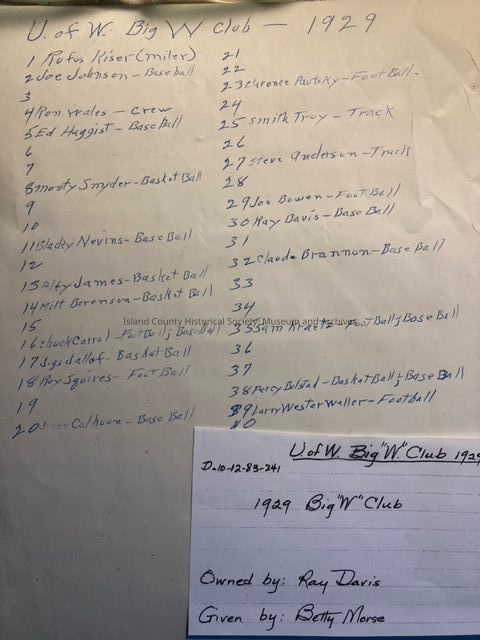 U. of W. Big W Club — 1929
1 Rufus Kiser (miler)
2 Joe Johnson - Baseball
3
4 Ron Wales — Crew
5 Ed Haggist - Baseball
6
7
8 Monty Snyder - Basket Ball
9
10
11 Bladdy Nevins - Base Ball
12
13 Alfy James - Basket Ball
14 Milt Berenson - Basket Ball
15
16 Chuck Carrol - Foot Ball; Base Ball
17 - Basket Ball
18 Roy Squires - Foot Ball
19
20 Calhoun - Base Ball
21
22
23 Clarence - Foot Ball -
24
25 Smith Troy - Track
26
27 Steve Anderson - Track
28
29 Joe Bowen - Foot Ball
30 Ray Davis - Base Ball
31
32 Claude Brannon - Base Ball
33
34
35 Sam - Foot Ball; Base Ball
36
37
38 Percy Bolstad - Basket Ball; Base Ball
39 Larry Westerweller - Football
40
Island County Historical Society Museum and Archives
U of W. Big "W." Club 1929
D-10-12-83-241
1929 Big "W" Club
Owned by: Ray Davis
Given by: Betty Morse